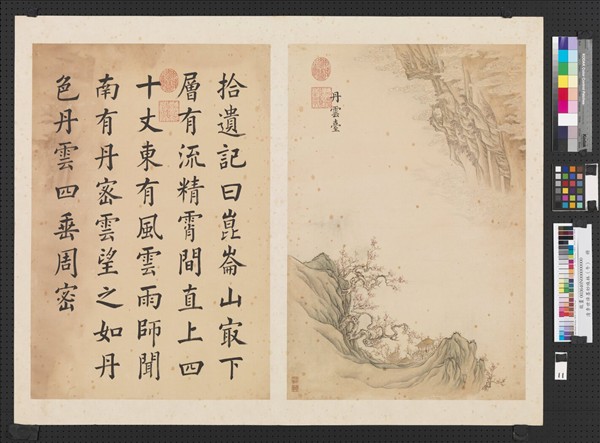 丹雲臺
拾遺記曰崑崙山㝡下
層有流精霄間直上四
十丈東有風雲雨師聞
南有丹密雲望之如丹
色丹雲四垂周密